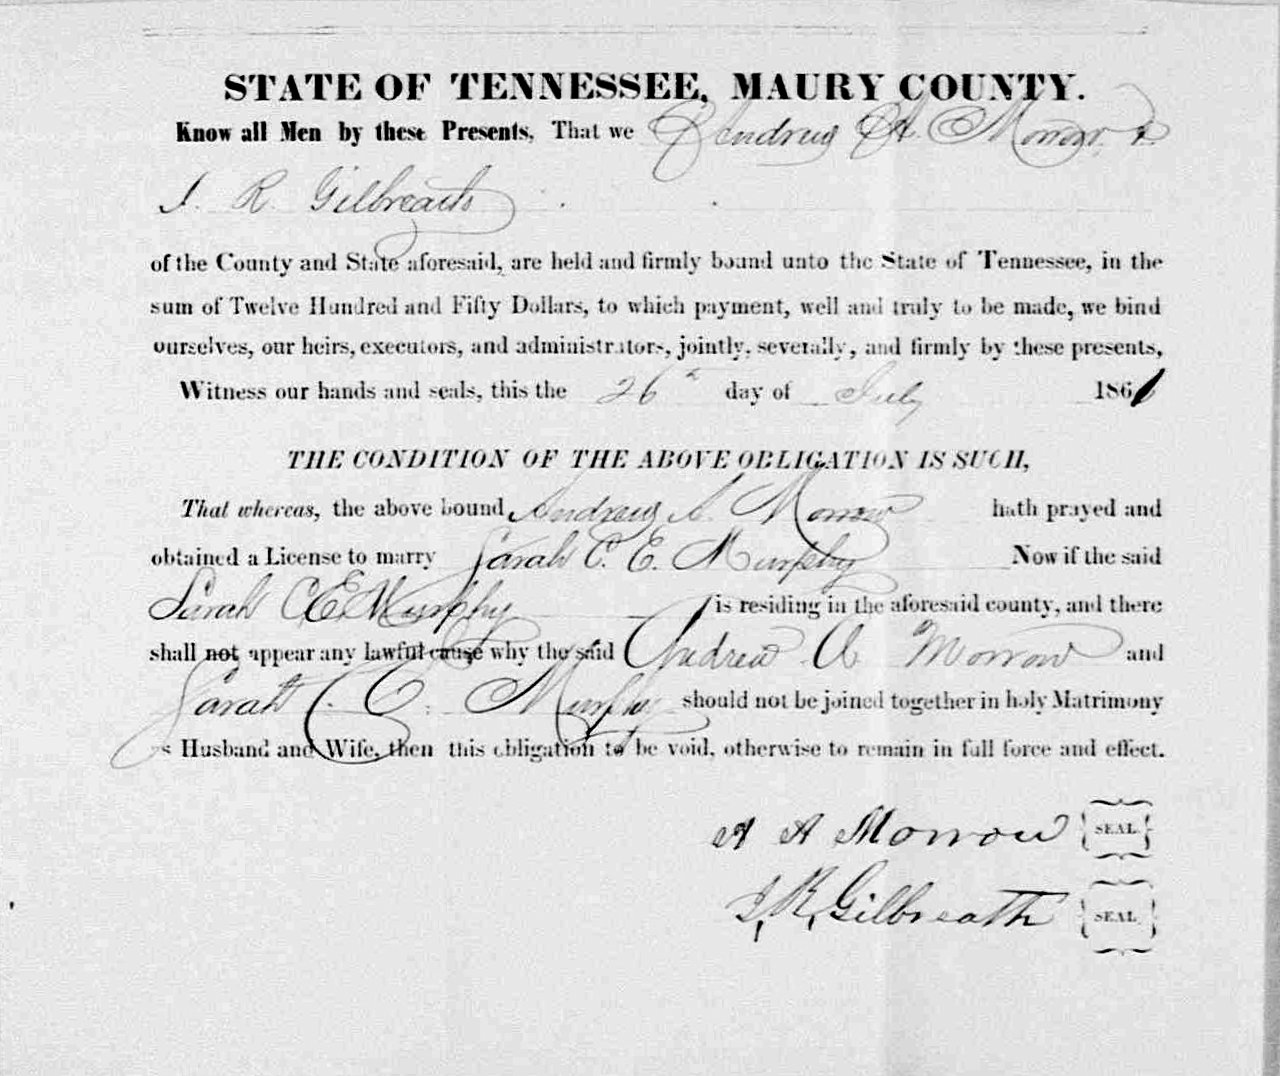 STATE OF TENNESSEE, MAURY COUNTY.
Know all Men by these Presents, That we Andrew A. Morrow &
J. R. Gilbreath
of the County and State aforesaid, are held and firmly bound unto the State of Tennessee, in the
sum of Twelve Hundred and Fifty Dollars, to which payment, well and truly to be made, we bind
ourselves, our heirs, executors, and administrators, jointly, severally, and firmly by these presents,
Witness our hands and seals, this the 26th day of July 1861
THE CONDITION OF THE ABOVE OBLIGATION IS SUCH,
That whereas, the above bound Andrew A. Morrow hath prayed and
obtained a License to marry Sarah C. E. Murphy Now if the said
Sarah C E Murphy is residing in the aforesaid county, and there
shall not appear any lawful cause why the said Andrew A Morrow and
Sarah C. E. Murphy should not be joined together in holy Matrimony
as Husband and Wife, then this obligation to be void, otherwise to remain in full force and effect.
A A Morrow SEAL
J. R. Gilbreath SEAL